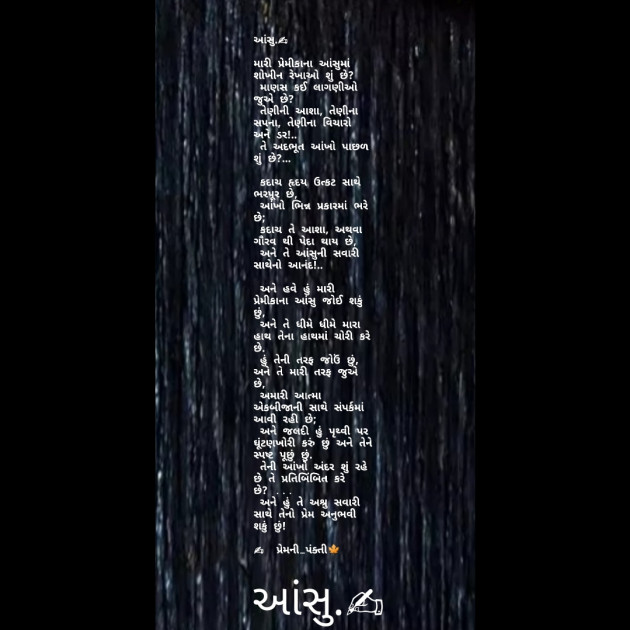 આંસુ.✍
મારી પ્રેમીકાના આંસુમાં
શોખીન રેખાઓ શું છે?
માણસ કઈ લાગણીઓ
જુએ છે?
તેણીની આશા, તેણીના
સપના, તેણીના વિચારો
અને ડર!..
તે અદભૂત આંખો પાછળ
શું છે?...
કદાચ હૃદય ઉત્કટ સાથે
ભરપૂર છે,
આંખો ભિન્ન પ્રકારમાં ભરે
છે;
કદાચ તે આશા, અથવા
ગૌરવ થી પેદા થાય છે,
અને તે આંસુની સવારી
સાથેનો આનંદ!..
અને હવે હું મારી
પ્રેમીકાના આંસુ જોઈ શકું
છું,
અને તે ધીમે ધીમે મારા
હાથ તેના હાથમાં ચોરી કરે
છે,
હું તેની તરફ જોઉં છું,
અને તે મારી તરફ જુએ
છે,
અમારી આત્મા
એકબીજાની સાથે સંપર્કમાં
આવી રહી છે;
અને જલદી હું પૃથ્વી પર
ઘૂંટણખોરી કરું છું અને તેને
સ્પષ્ટ પૂછું છું.
તેની આંખો અંદર શું રહે
છે તે પ્રતિબિંબિત કરે
છે? . . .
અને હું તે અશ્રુ સવારી
સાથે તેનો પ્રેમ અનુભવી
શકું છું!
✍ પ્રેમની_પંક્તી🍁
આંસુ.✍